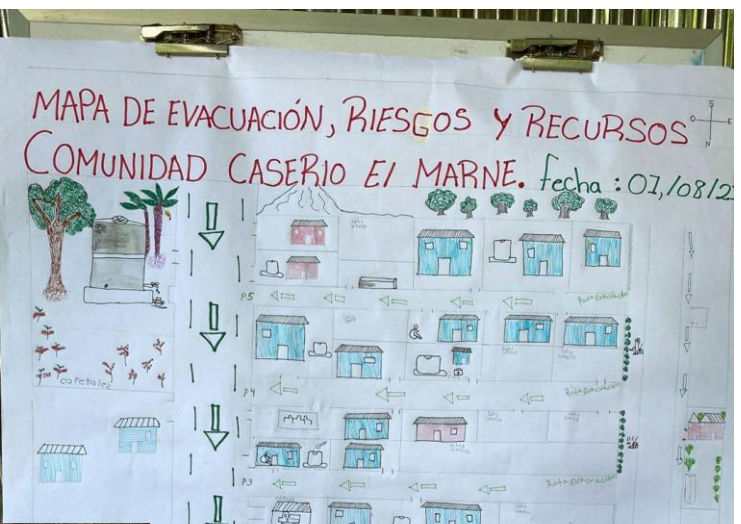 MAPA DE EVACUACIÓN, RIESGOS Y RECURSOS
COMUNIDAD CASERIO El MARNE. fecha : 01/08/2
S
O E
N
P5
Ruta Evacuación
cafetales
P4
Ruta Evacuación
P3
Ruta Evacuación